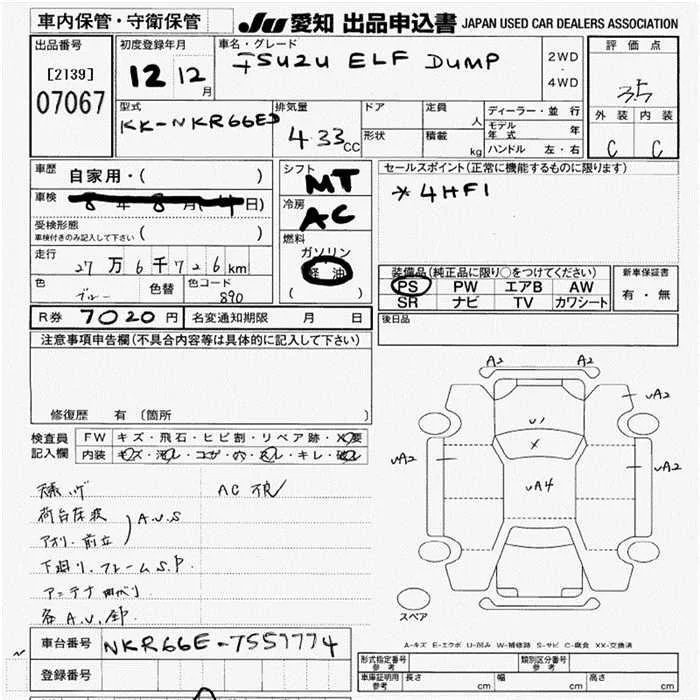 車内保管・守衛保管
JU 愛知 出品申込書 JAPAN USED CAR DEALERS ASSOCIATION
出品番号
[2139]
07067
初度登録年月
12 12月
車名・グレード
ISUZU ELF DUMP
2WD
・
4WD
評価点
3.5
外装 内装
C C
型式
KK-NKR66ED
排気量
4.33 CC
ドア
形状
定員
人
積載
kg
ディーラー・並行
モデル年式 年
ハンドル 左・右
車歴 自家用・( )
車検 8年8月(4日)
受検形態
車検付きのみ記入して下さい ( )
走行
27万6千726km
色 ブルー 色替 色コード 890
シフト MT
冷房 AC
燃料
ガソリン
軽油
( )
セールスポイント(正常に機能するものに限ります)
*4HF1
装備品(純正品に限り○をつけてください)
PS PW エアB AW
SR ナビ TV カワシート
新車保証書
有・無
R券 7020円 名変通知期限 月 日
後日品
注意事項申告欄(不具合内容等は具体的に記入して下さい)
修復歴 有 〔箇所 〕
検査員記入欄
FW キズ・飛石・ヒビ割・リペア跡・X要
内装 キズ・汚レ・コゲ・穴・スレ・キレ・破レ
AC不良
荷台床板
アオリ、前立
A.U.S
下廻り、フレームS.P.
アンテナ曲がり
各A.U.
A2 A2
UA2
U1
X
UA2
UA4
UA2
スペア
A-キズ E-エクボ U-凹み W-補修跡 S-サビ C-腐食 XX-交換済
車台番号 NKR66E-7551774
登録番号
形式指定番号
参考
類別区分番号
参考
車庫証明用
参考
長さ cm 幅 cm 高さ cm